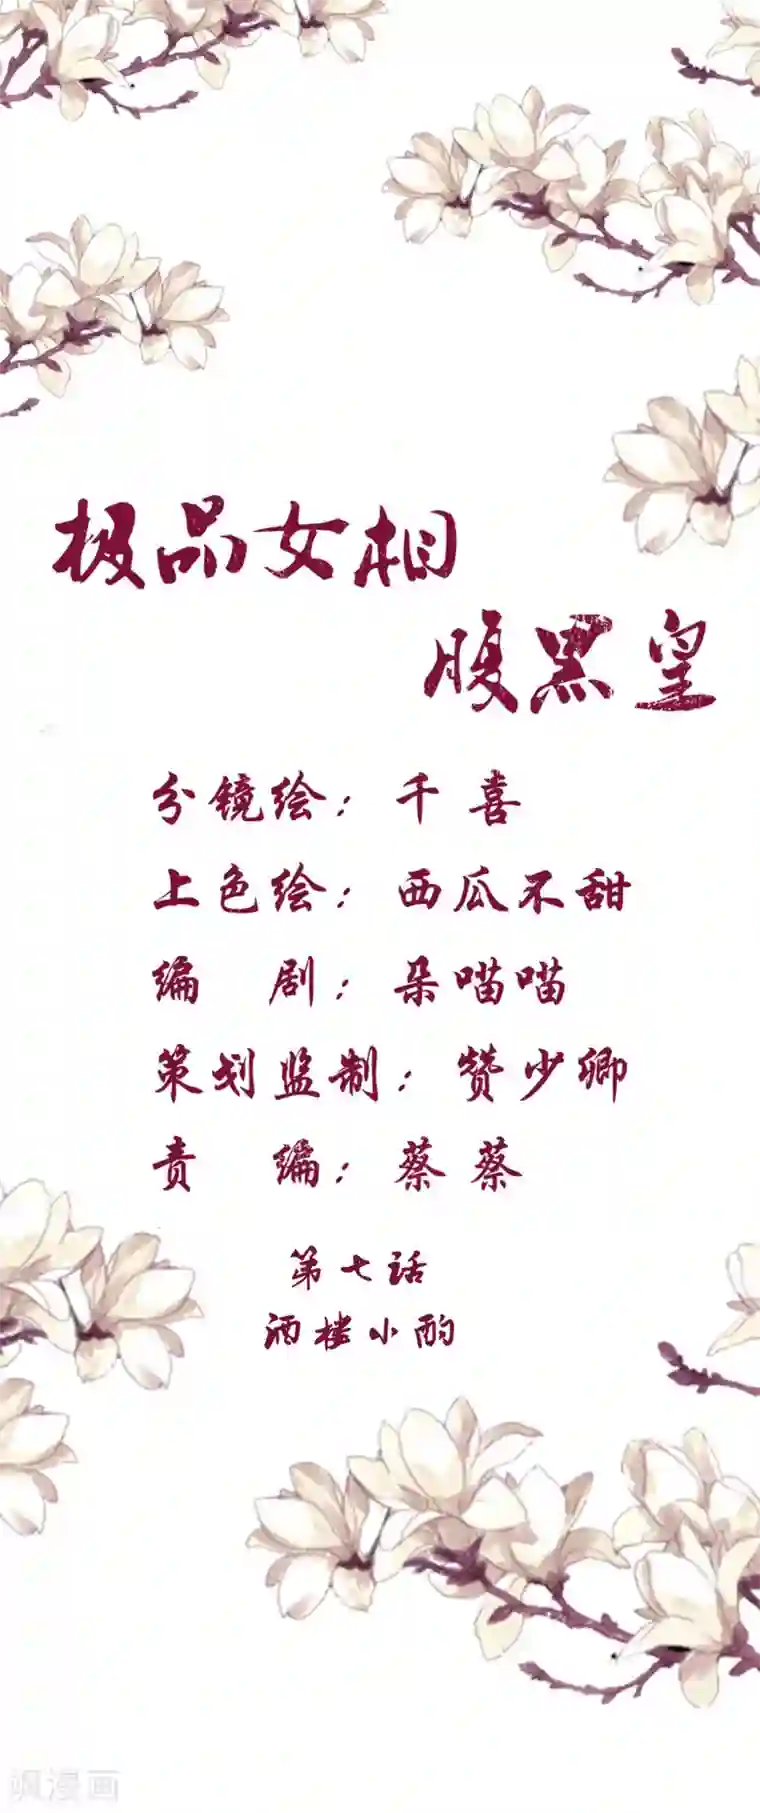 极品女相
腹黑皇
分镜绘：千喜
上色绘：西瓜不甜
编 剧：朵喵喵
策划监制：赞少卿
责 编：蔡蔡
第七话
酒楼小酌
飒漫画